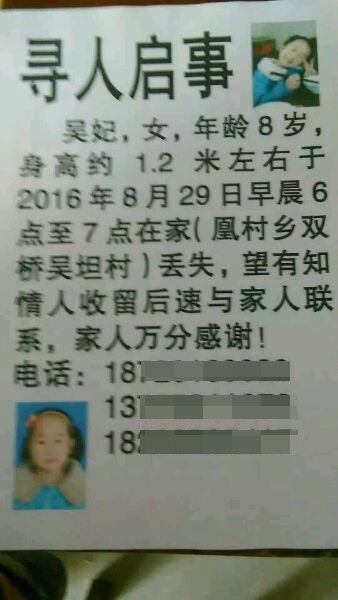 寻人启事
吴妃，女，年龄8岁，
身高约 1.2 米左右于
2016年8月29日早晨6
点至7点在家(凰村乡双
桥吴坦村)丢失，望有知
情人收留后速与家人联
系，家人万分感谢！
电话：187
137
182